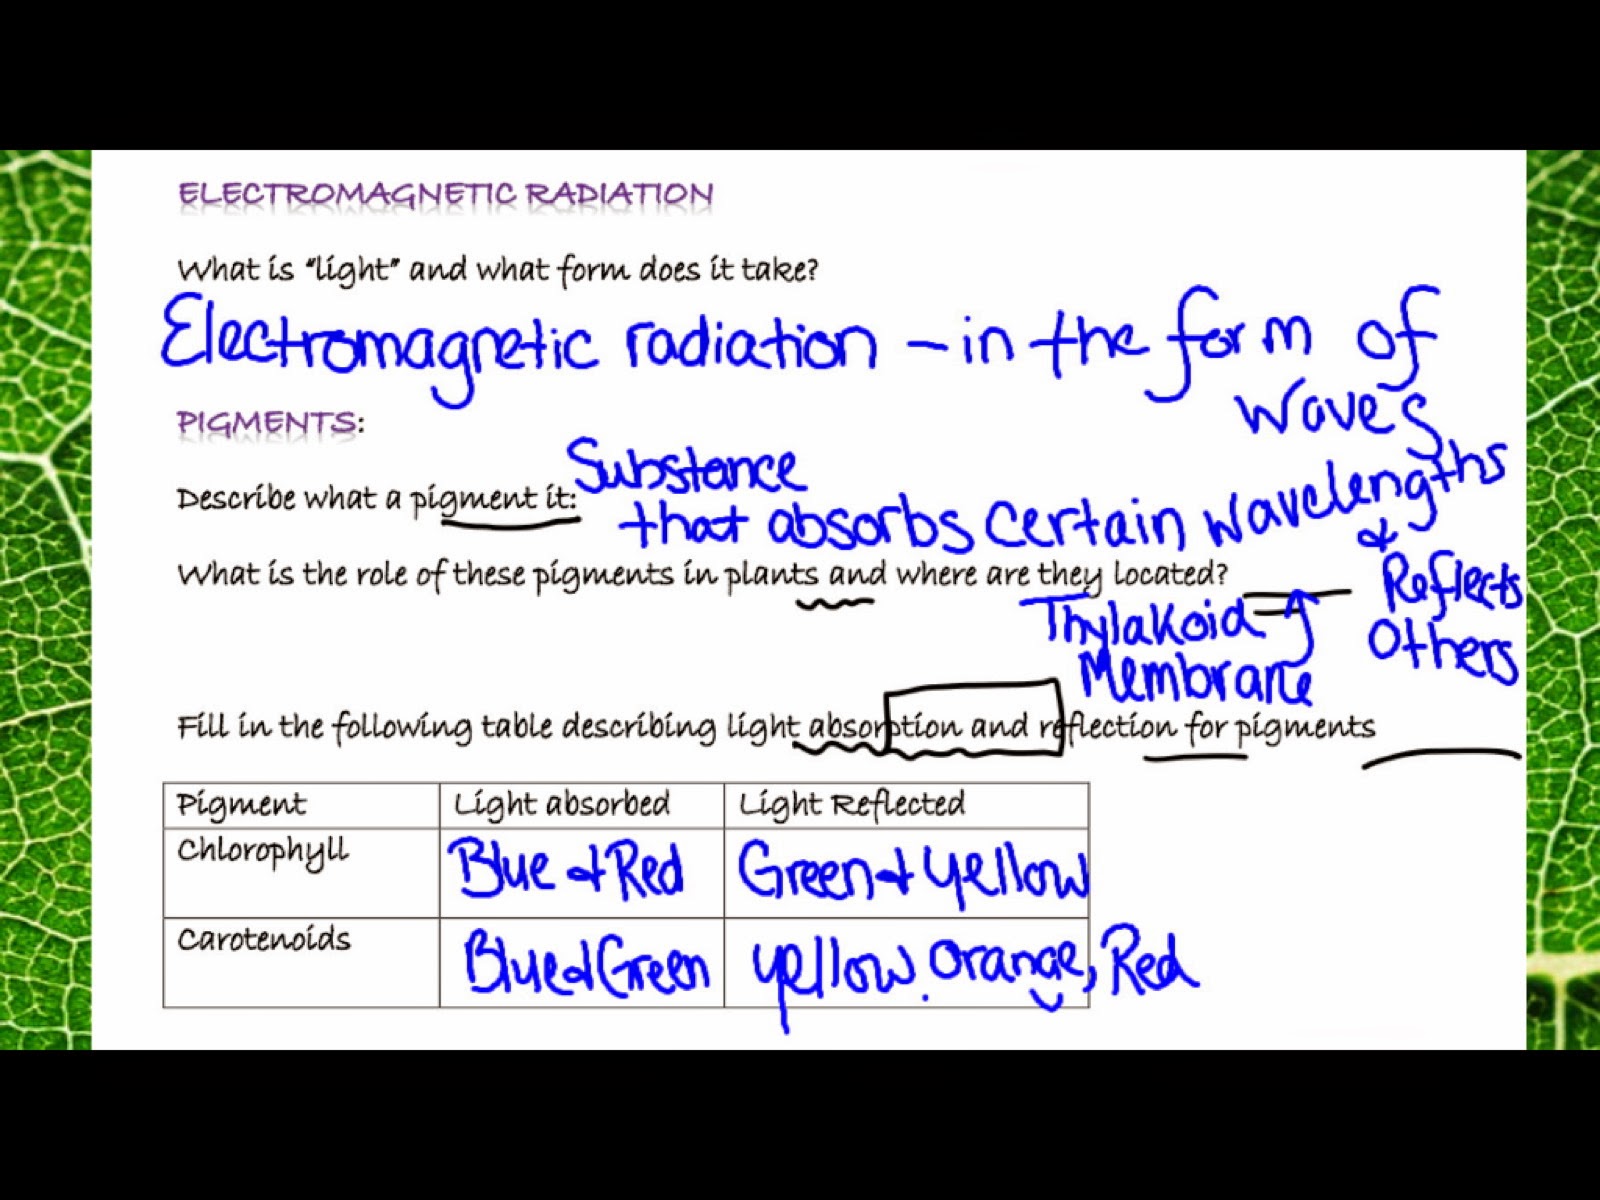 ELECTROMAGNETIC RADIATION
What is "light" and what form does it take?
Electromagnetic radiation – in the form of
waves
PIGMENTS:
Describe what a pigment it:
Substance
that absorbs certain wavelengths
&
Reflects
Others
What is the role of these pigments in plants and where are they located?
Thylakoid
Membrane
Fill in the following table describing light absorption and reflection for pigments
Pigment Light absorbed Light Reflected
Chlorophyll Blue & Red Green & yellow
Carotenoids Blue & Green yellow, orange, Red